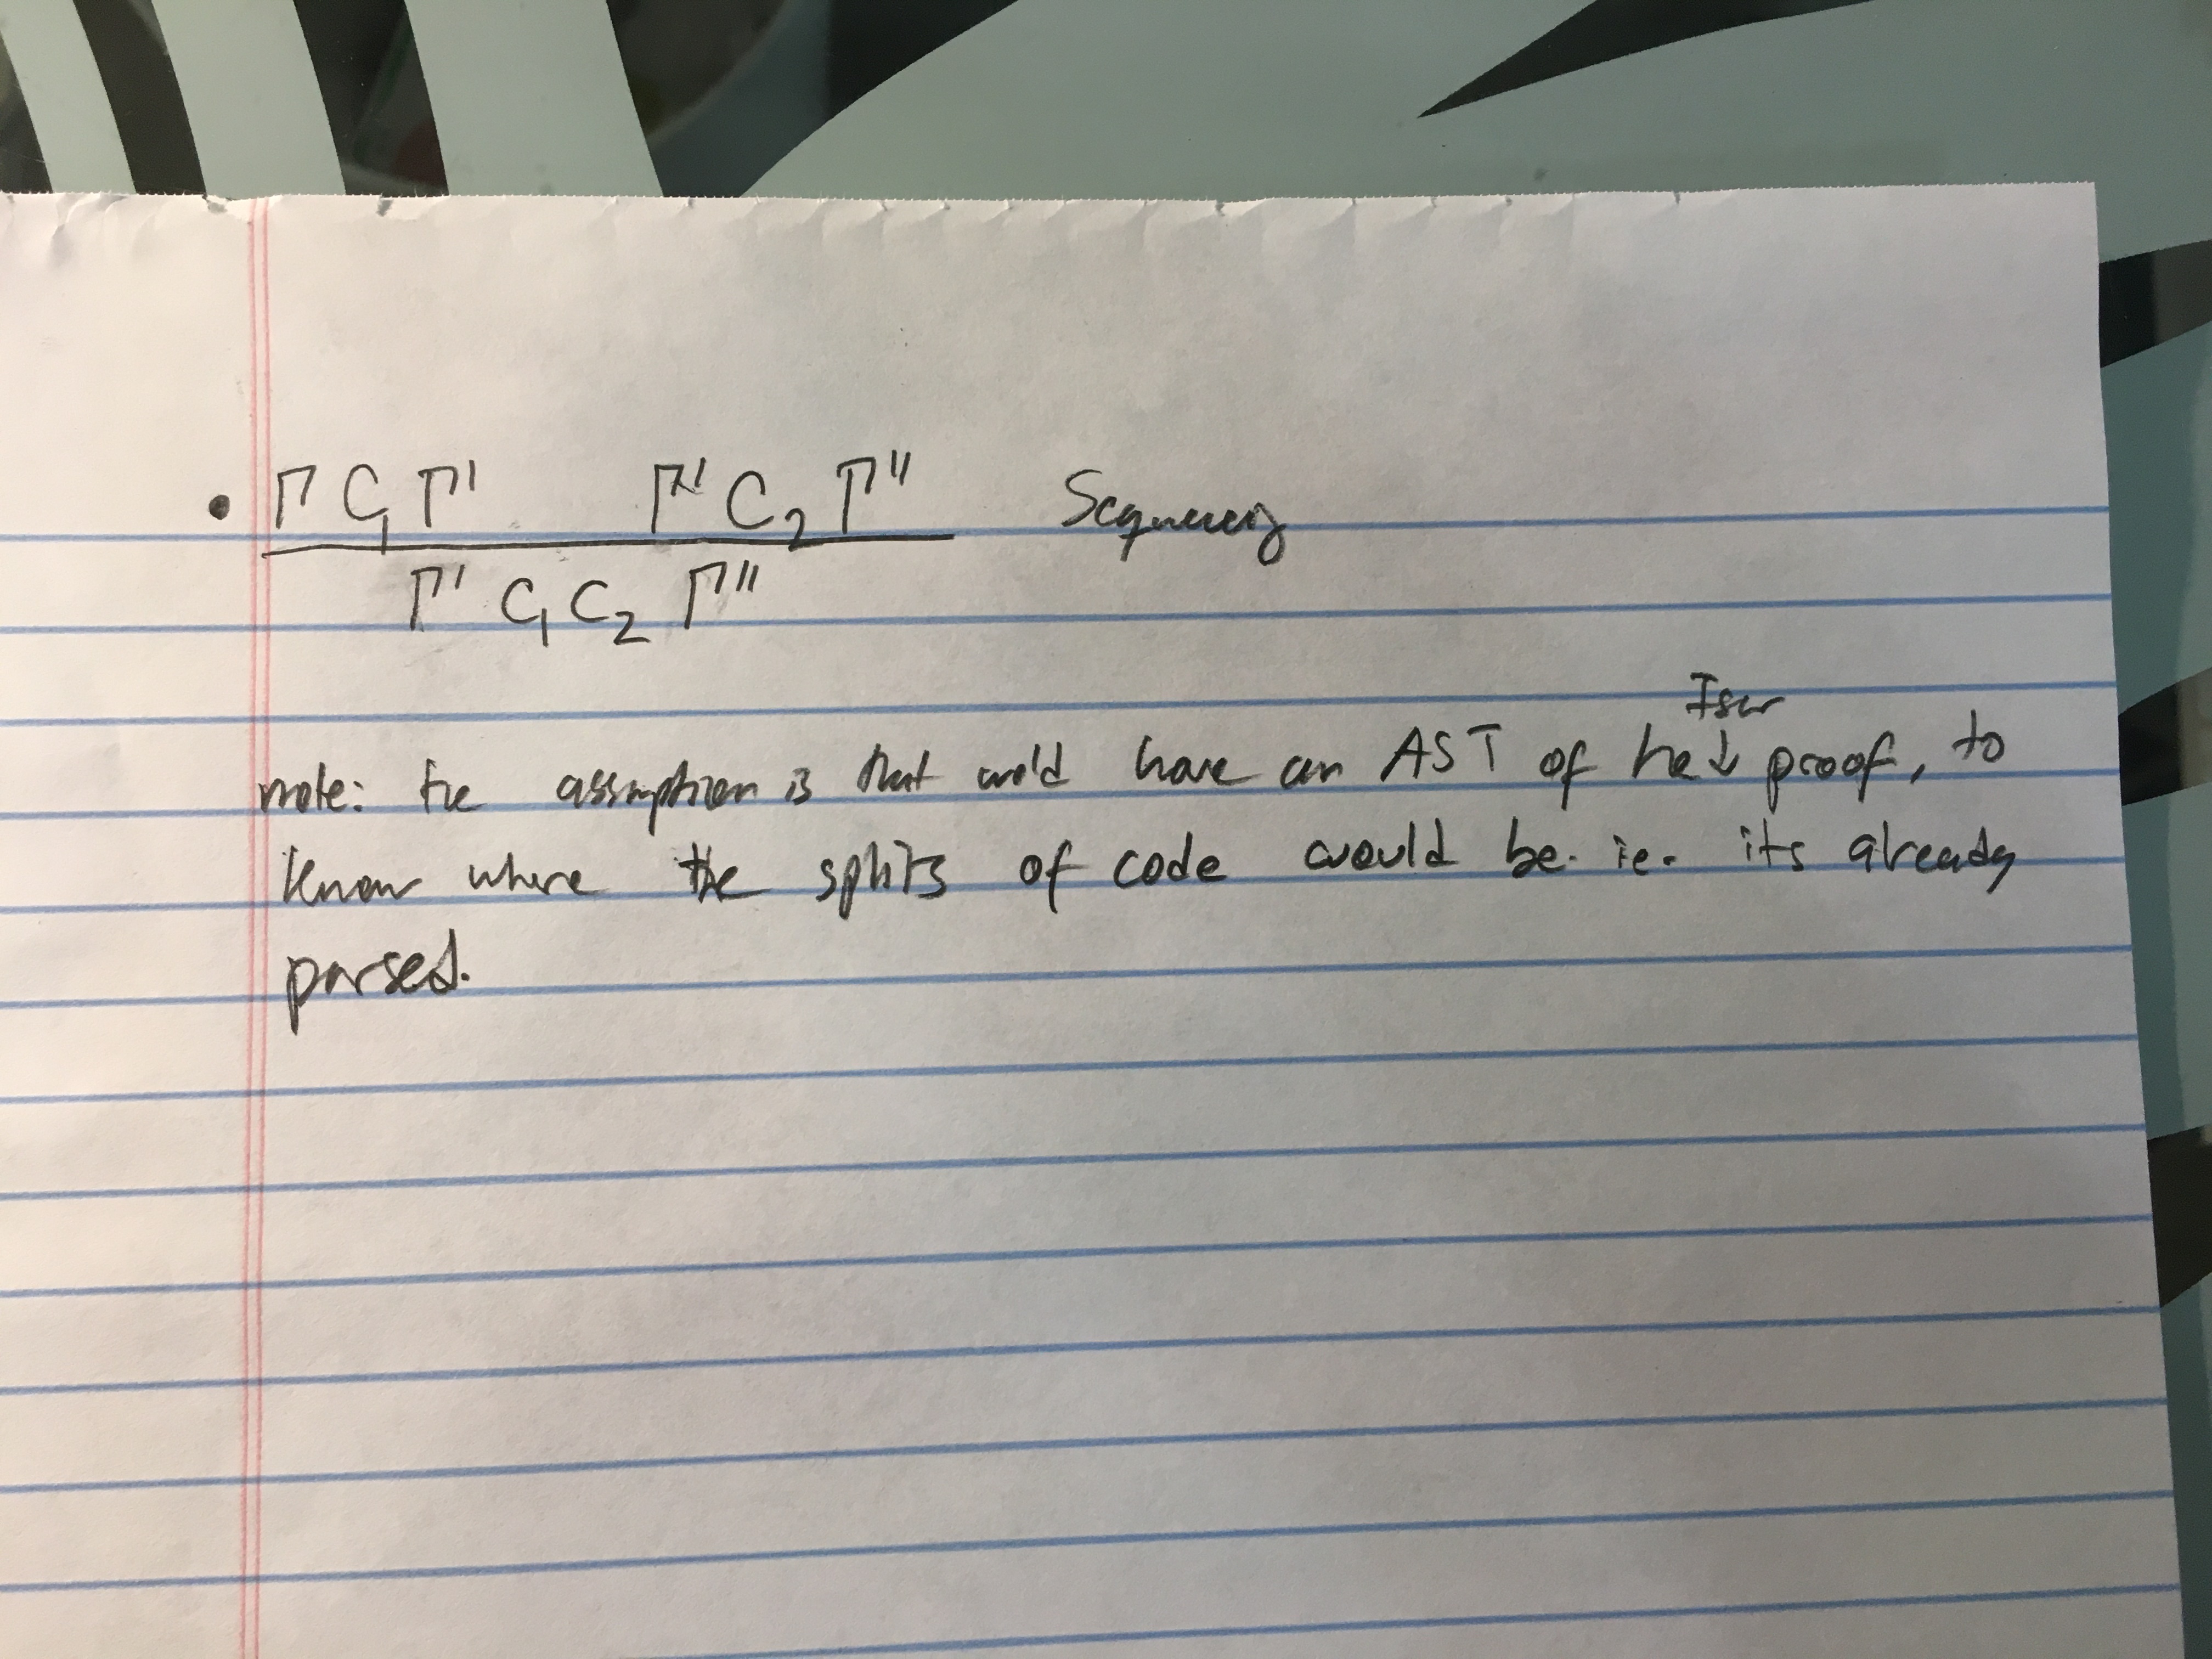 • Γ C₁ Γ' Γ' C₂ Γ'' Sequency
Γ' C₁ C₂ Γ''
Isar
note: the assumption is that would have an AST of he↓ proof, to
know where the splits of code would be. ie. its already
parsed.